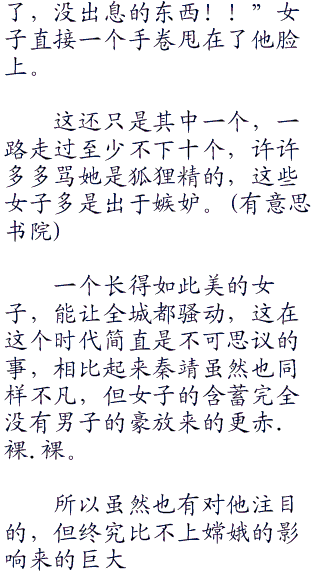 了，没出息的东西！！”女
子直接一个手卷甩在了他脸
上。
这还只是其中一个，一
路走过至少不下十个，许许
多多骂她是狐狸精的，这些
女子多是出于嫉妒。(有意思
书院)
一个长得如此美的女
子，能让全城都骚动，这在
这个时代简直是不可思议的
事，相比起来秦靖虽然也同
样不凡，但女子的含蓄完全
没有男子的豪放来的更赤.
裸.裸。
所以虽然也有对他注目
的，但终究比不上嫦娥的影
响来的巨大